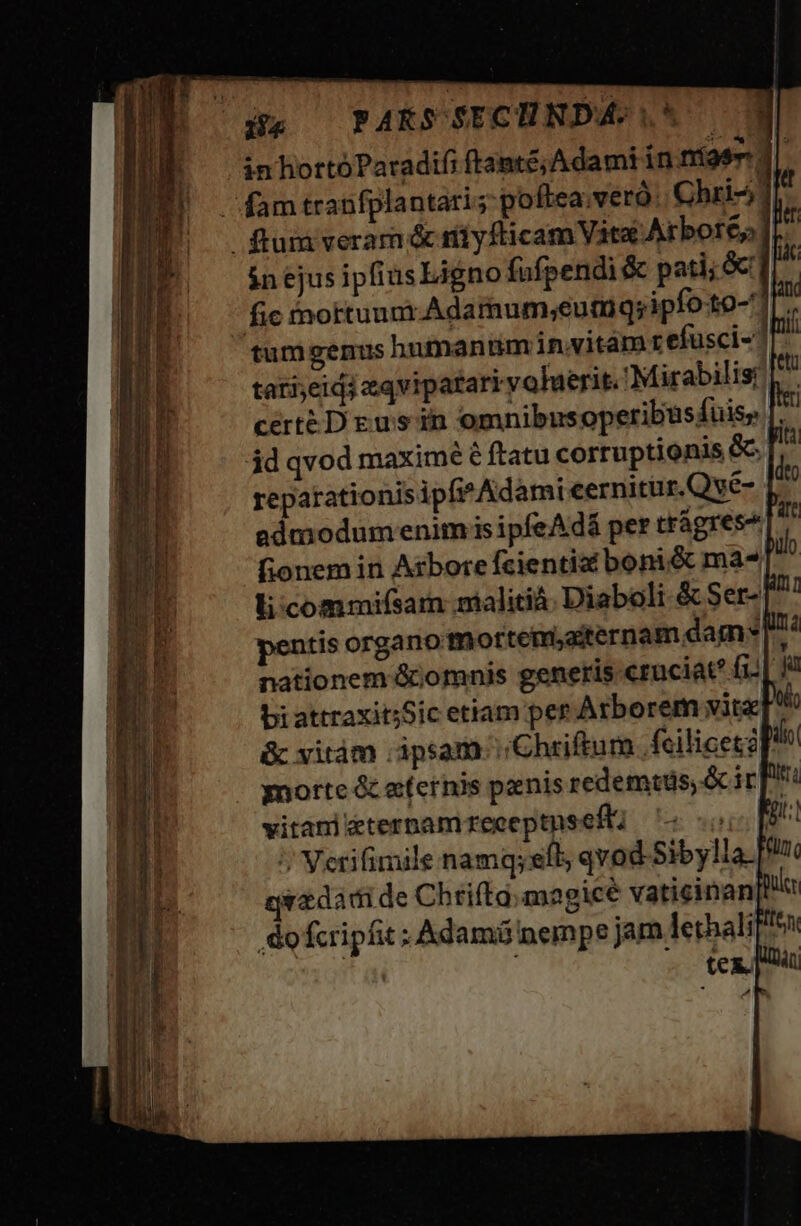 PARS SECUNDA.
in horto Paradisi stanté, Adami in
sam transplantari; postea verò Chri-
stum veram & mysticam Vitæ Arboré,
in ejus ipsius Ligno suspendi & pati; &
sic mortuum Adamum, eumq; ipso to-
tum genus humanum in vitam resusci-
tari, eidq; æqviparari voluerit. Mirabilis
certè DEus in omnibus operibus suis,
id qvod maximè è statu corruptionis &
reparationis ipsi⁹ Adami cernitur. Qvé-
admodum enim is ipse Adã per trãgres-
sionem in Arbore scientiæ boni & ma-
li commissam malitiâ Diaboli & Ser-
pentis organo mortem, æternam dam-
nationem & omnis generis cruciat⁹ si-
bi attraxit; Sic etiam per Arborem vitæ
& vitam ipsam Christum scilicet à
morte & æternis pænis redemtus, & in
vitam æternam receptus est.
Verisimile namq; est, qvod Sibylla
qvædam de Christo magicè vaticinan
do scripsit; Adamũ nempe jam lethali
tex